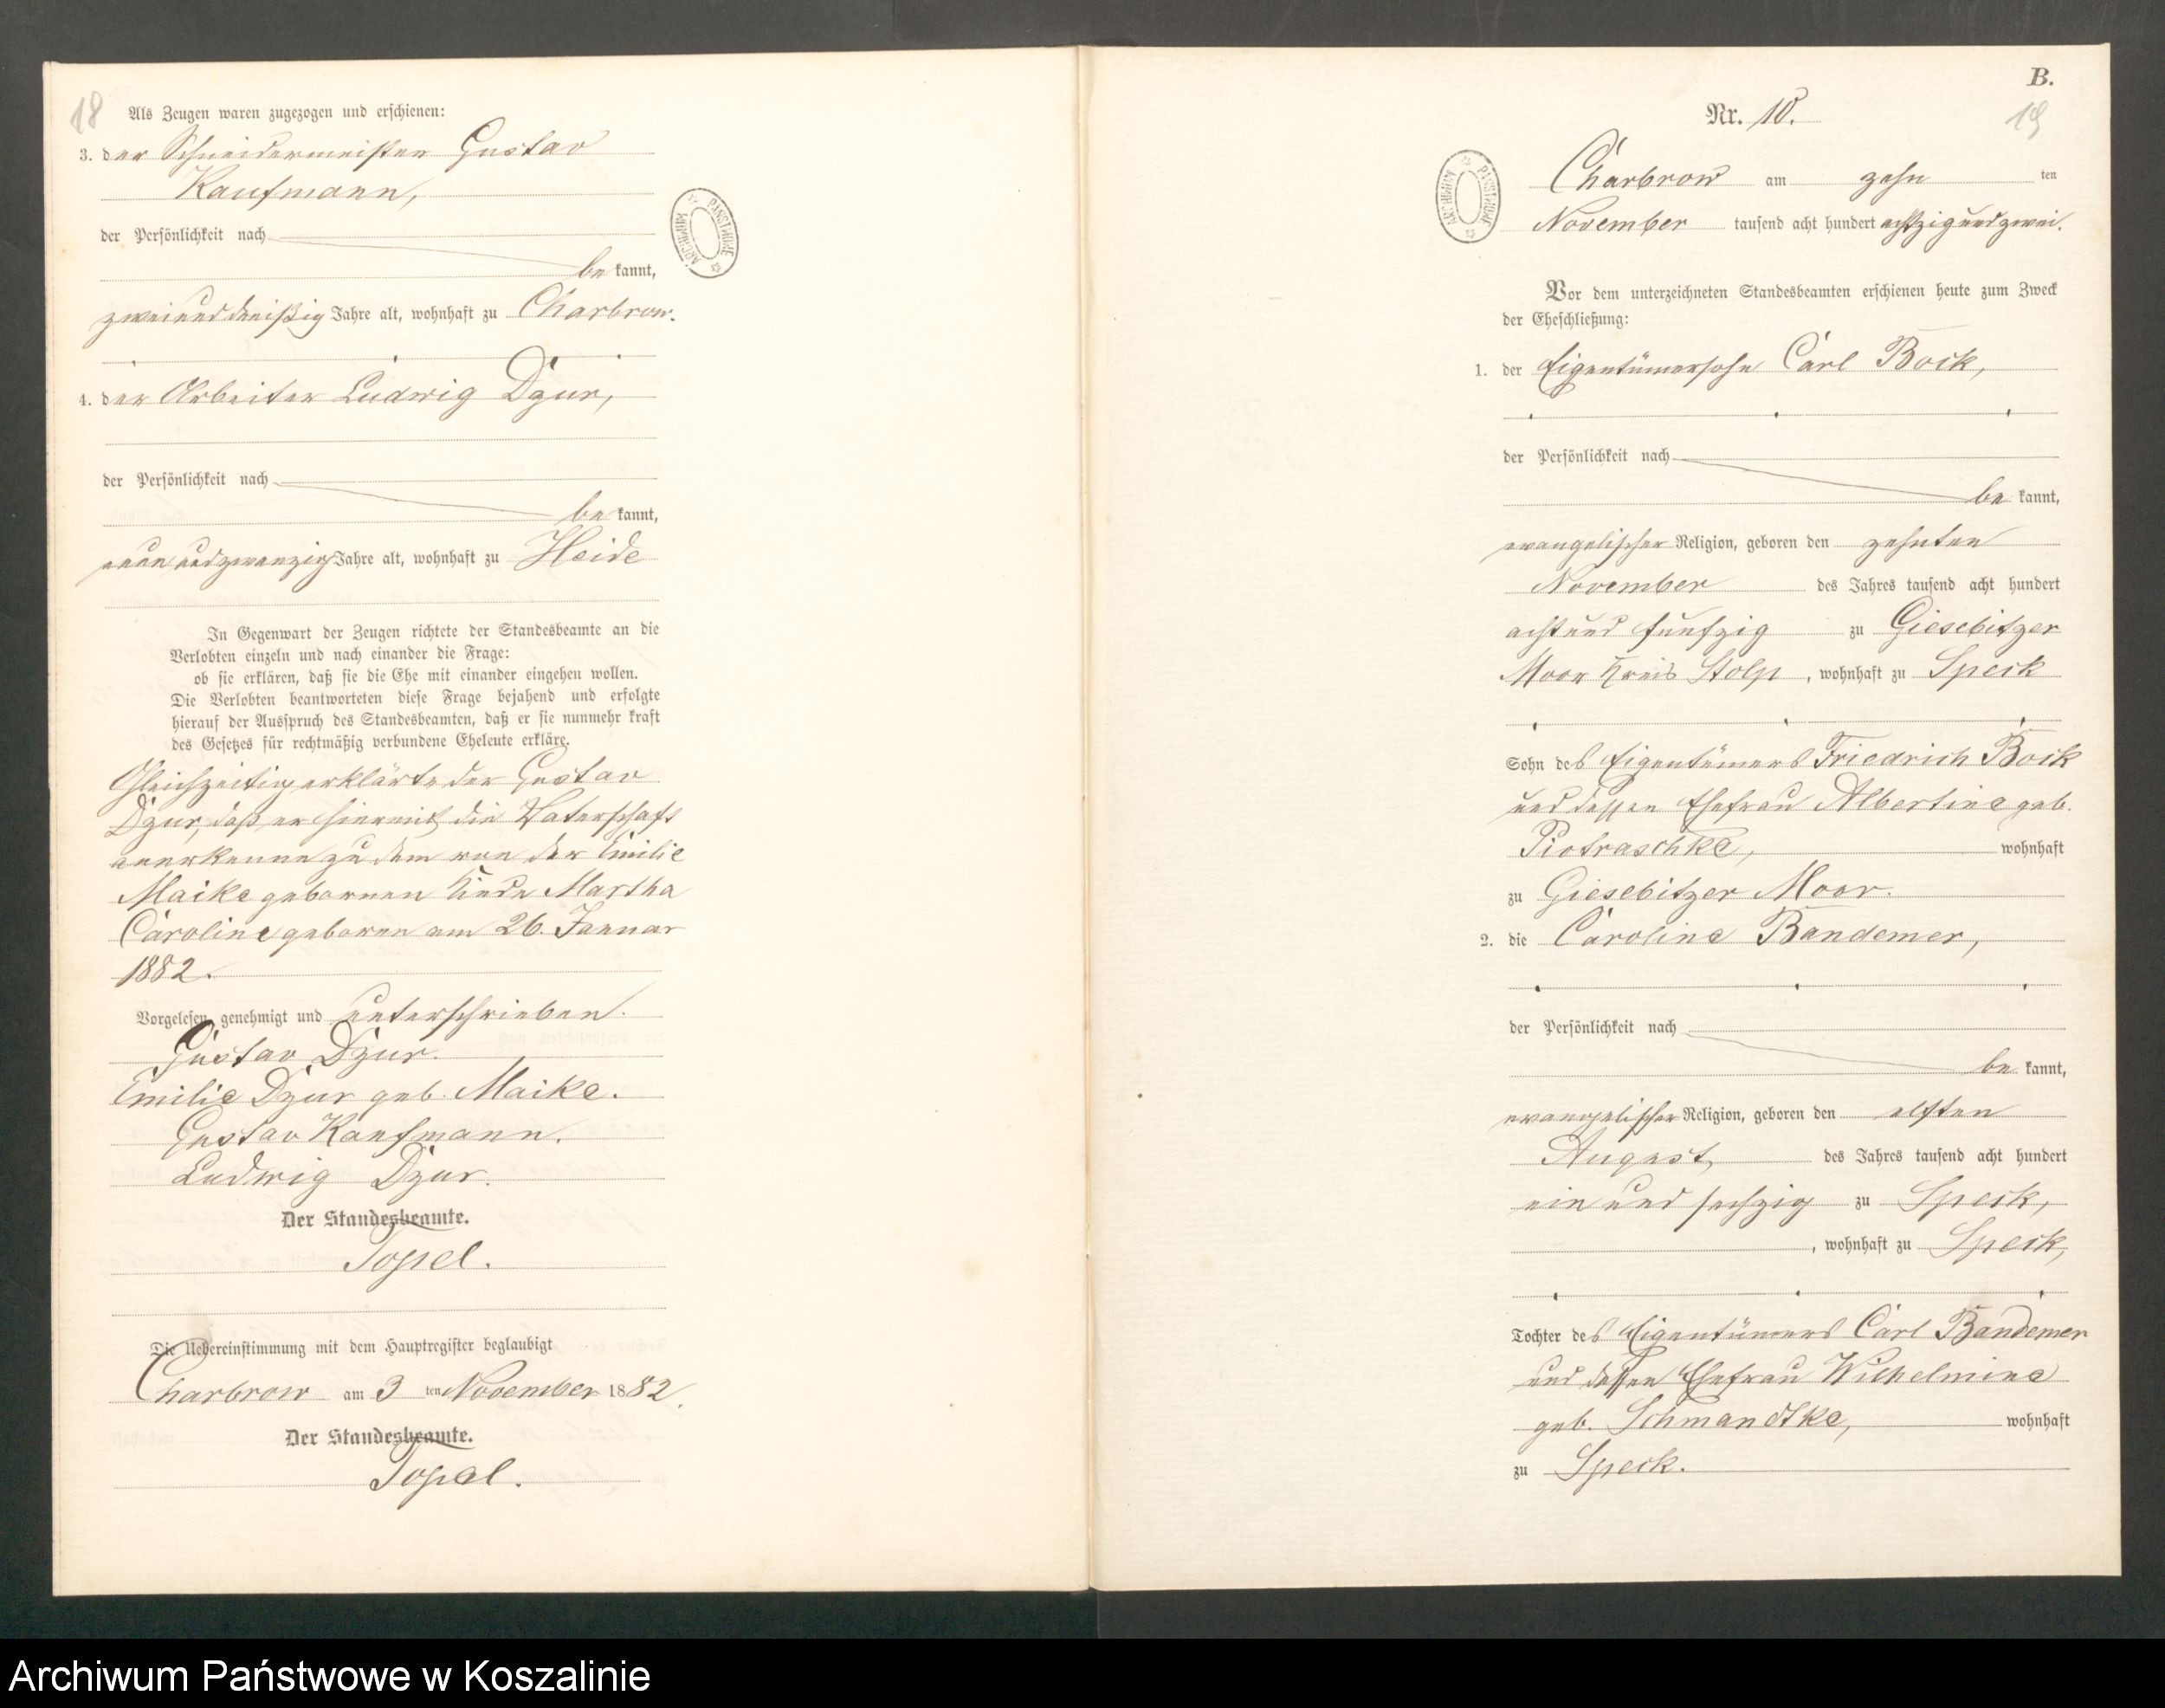 18
Als Zeugen waren zugezogen und erschienen:
3. der Schneidermeister Gustav
Kaufmann,
der Persönlichkeit nach
be kannt,
zweiunddreißig Jahre alt, wohnhaft zu Charbrow.
4. der Arbeiter Ludwig Dzur,
der Persönlichkeit nach
be kannt,
neun und zwanzig Jahre alt, wohnhaft zu Heide
In Gegenwart der Zeugen richtete der Standesbeamte an die
Verlobten einzeln und nach einander die Frage:
ob sie erklären, daß sie die Ehe mit einander eingehen wollen.
Die Verlobten beantworteten diese Frage bejahend und erfolgte
hierauf der Ausspruch des Standesbeamten, daß er sie nunmehr kraft
des Gesetzes für rechtmäßig verbundene Eheleute erkläre.
Gleichzeitig erklärte der Gustav
Dzur, daß er hiermit die Vaterschaft
anerkenne zu dem von der Emilie
Maike gebornen Kinde Martha
Caroline geboren am 26. Januar
1882.
Vorgelesen, genehmigt und unterschrieben.
Gustav Dzur.
Emilie Dzur geb. Maike.
Gustav Kaufmann.
Ludwig Dzur.
Der Standesbeamte.
Topel.
Die Uebereinstimmung mit dem Hauptregister beglaubigt
Charbrow am 3 ten November 1882.
Der Standesbeamte.
Topel.
ARCHIWUM PAŃSTWOWE
B.
19
Nr. 10.
ARCHIWUM PAŃSTWOWE
Charbrow am zehn ten
November tausend acht hundert achtzig und zwei.
Vor dem unterzeichneten Standesbeamten erschienen heute zum Zweck
der Eheschließung:
1. der Eigentümersohn Carl Bock,
der Persönlichkeit nach
be kannt,
evangelischer Religion, geboren den zehnten
November des Jahres tausend acht hundert
acht und funfzig zu Giesebitzer
Moor Kreis Stolp, wohnhaft zu Speck
Sohn des Eigentümers Friedrich Bock
und dessen Ehefrau Albertine geb.
Piotraschke, wohnhaft
zu Giesebitzer Moor.
2. die Caroline Bandemer,
der Persönlichkeit nach
be kannt,
evangelischer Religion, geboren den elften
August des Jahres tausend acht hundert
ein und sechzig zu Speck,
, wohnhaft zu Speck,
Tochter des Eigentümers Carl Bandemer
und dessen Ehefrau Wilhelmine
geb. Schmandtke, wohnhaft
zu Speck.
Archiwum Państwowe w Koszalinie